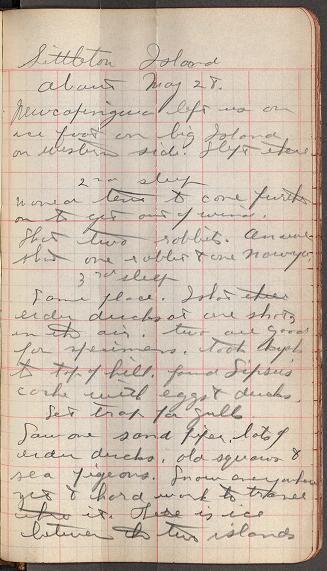 Littleton Island
about May 28.
left us on
ice foot on big Island
on western side. Slept there
2nd sleep
moved tent to cove further
on to get out of wind.
Shot two rabbits.
shot one rabbit & one
3rd sleep
Same place. I shot three
eider ducks at one shot
in the air. two are good
for specimens. took
to top of hill. found
cache with eggs & ducks.
Set trap for gulls.
Saw one sand piper, lots of
eider ducks, old squaws &
sea pigeons. Snow everywhere
yet & hard work to travel
it. There is ice
between the two islands